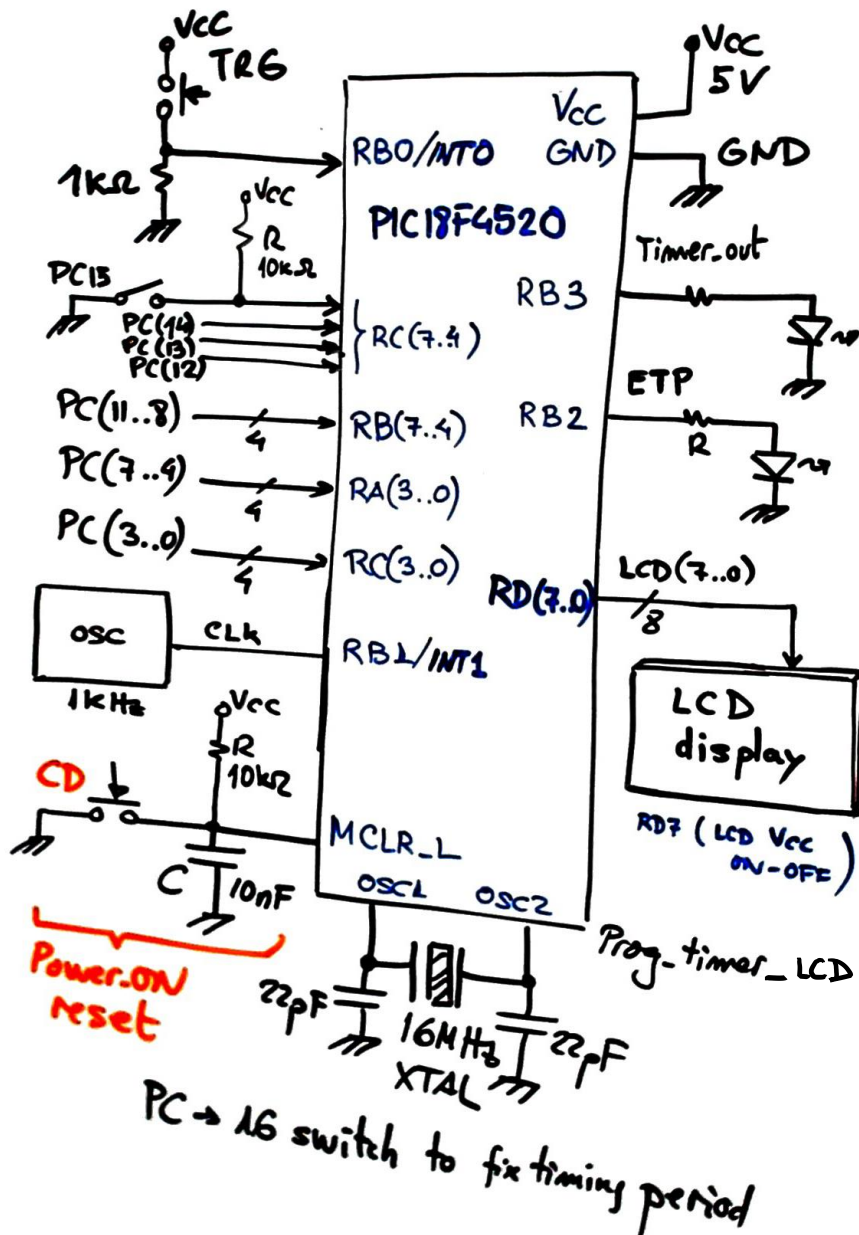 VCC
TRG
1kΩ
VCC
R
10kΩ
PC15
PC(14)
PC(13)
PC(12)
PC(11..8)
4
PC(7..4)
4
PC(3..0)
4
OSC
1KHz
CLK
VCC
R
10kΩ
CD
C
10nF
Power-ON
reset
RB0/INT0
VCC
GND
PIC18F4520
RB3
RC(7..4)
RB(7..4)
RB2
RA(3..0)
RC(3..0)
RD(7..0)
RB1/INT1
MCLR_L
OSC1
OSC2
VCC
5V
GND
Timer_out
ETP
R
LCD(7..0)
8
LCD
display
RD7 (LCD VCC
ON-OFF)
Prog_timer_LCD
22pF
16MHz
XTAL
22pF
PC → 16 switch to fix timing period